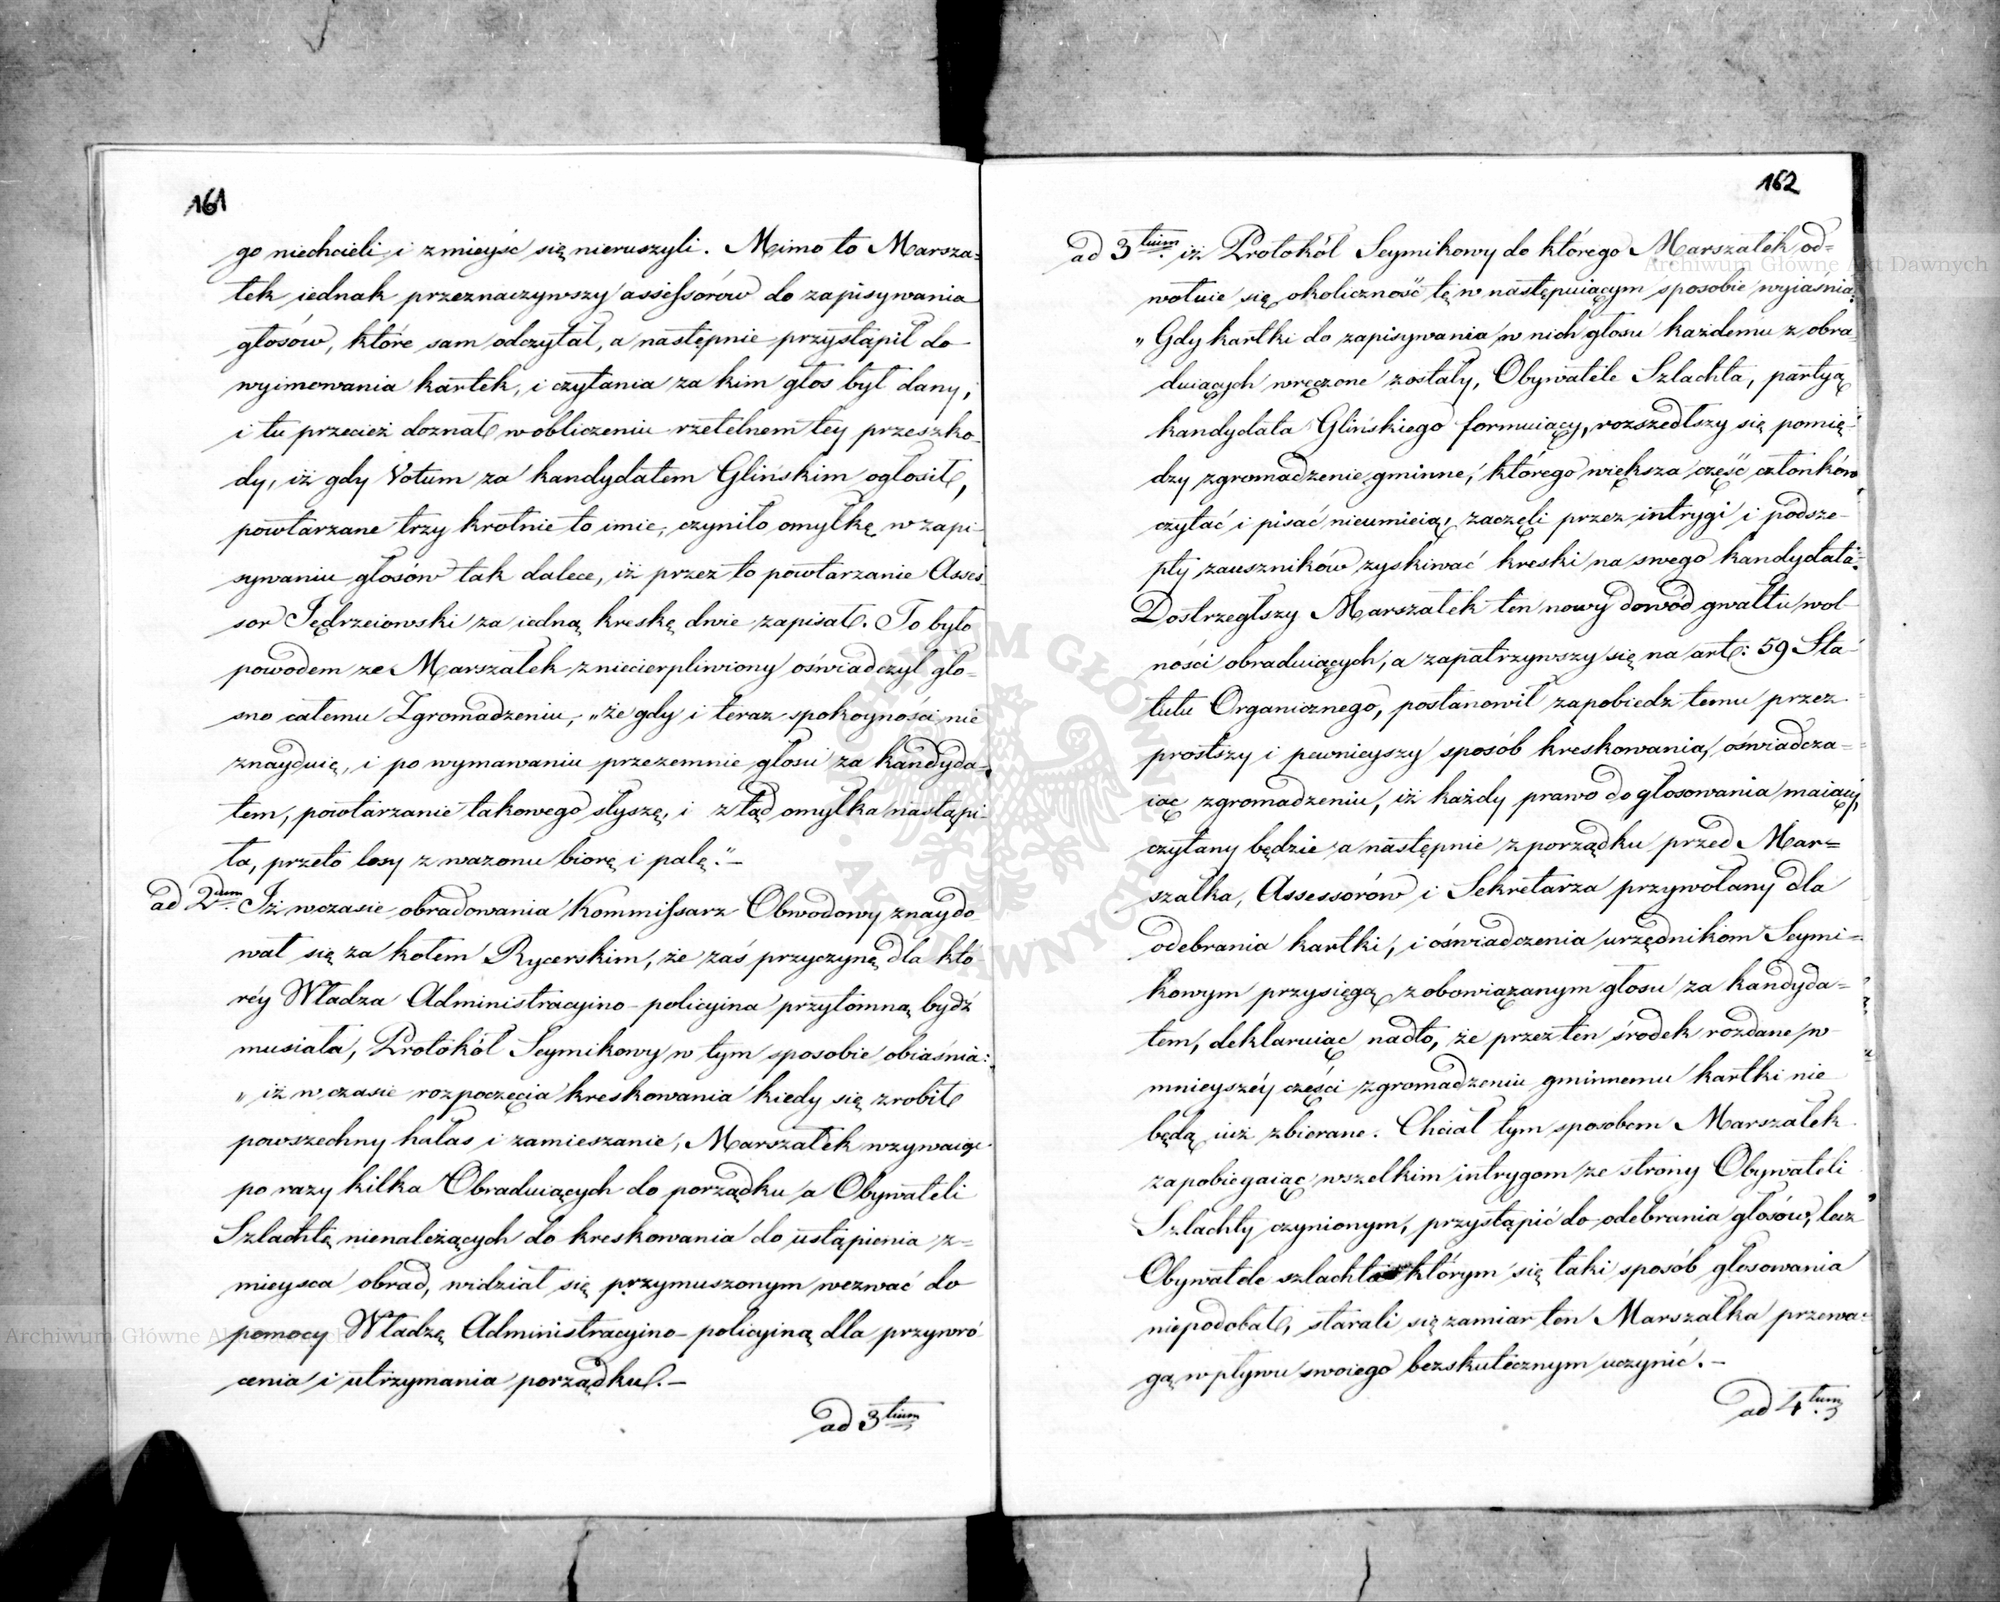 161
go niechcieli, i z mieysc się nieruszyli. Mimo to Marsza-
łek iednak przeznaczywszy assessorów do zapisywania
głosów, które sam odczytał, a następnie przystąpił do
wyimowania kartek, i czytania za kim głos był dany,
i tu przecież doznał w obliczeniu rzetelnem tey przeszko-
dy, iż gdy Votum za kandydatem Glińskim ogłosił,
powtarzane trzy krotnie to imie, czyniło omyłkę w zapi-
sywaniu głosów tak dalece, iż przez to powtarzanie Asses
sor Jędrzeiowski za iedną kreskę dwie zapisał. To było
powodem ze Marszałek zniecierpliwiony oświadczył gło-
sno całemu Zgromadzeniu, „że gdy i teraz spokoyności nie
znayduię, i po wymawaniu przezemnie głosu za kandyda-
tem, powtarzanie takowego słyszę, i z tąd omyłka nastąpi-
ła, przeto losy z wazonu biorę i palę." –
ad 2um. Iż wczasie obradowania Kommissarz Obwodowy znaydo-
wał się za kołem Rycerskim, że zaś przyczynę dla któ-
réy Władza Administracyino-policyina przytomną bydź
musiała, Protokół Seymikowy w tym sposobie obiaśnia:
„iż w czasie rozpoczęcia kreskowania kiedy się zrobił
powszechny hałas i zamieszanie, Marszałek wzywaiąc
po razy kilka Obraduiących do porządku a Obywateli
Szlachtę nienależących do kreskowania do ustąpienia z-
mieysca obrad, widział się przymuszonym wezwać do
pomocy Władzę Administracyino-policyiną dla przywró
cenia i utrzymania porządku. –
ad 3tium
162
ad 3tium. iż Protokół Seymikowy do którego Marszałek od-
wołuie się, okoliczność tę w następuiącym sposobie wyiaśnia:
„Gdy kartki do zapisywania w nich głosu każdemu z obra-
duiących wręczone zostały, Obywatele Szlachta, partyą
kandydata Glińskiego formuiący, rozszedłszy się pomię-
dzy zgromadzenie gminne, którego większa część członków
czytać i pisać nieumieią, zaczęli przez intrygi i podsze-
pty zauszników zyskiwać kreski na swego kandydata.
Dostrzegłszy Marszałek ten nowy dowód gwałtu wol-
ności obraduiących, a zapatrzywszy się na art: 59 Sta-
tutu Organicznego, postanowił zapobiedz temu przez
prostszy i pewnieyszy sposób kreskowania, oświadcza-
iąc zgromadzeniu, iż każdy prawo do głosowania maiący,
czytany będzie a następnie z porządku przed Mar-
szałka, Assessorów i Sekretarza przywołany dla
odebrania kartki, i oświadczenia urzędnikom Seymi-
kowym przysięgą zobowiązanym głosu za kandyda-
tem, deklaruiąc nadto, że przez ten środek rozdane w
mnieyszéy części zgromadzeniu gminnemu kartki nie
będą iuż zbierane. Chciał tym sposobem Marszałek
zapobiegaiąc wszelkim intrygom ze strony Obywateli
Szlachty czynionym, przystąpić do odebrania głosów, lecz
Obywatele szlachta którym się taki sposób głosowania
niepodobał, starali się zamiar ten Marszałka przewa-
gą wpływu swoiego bezskutecznym uczynić. –
ad 4tum